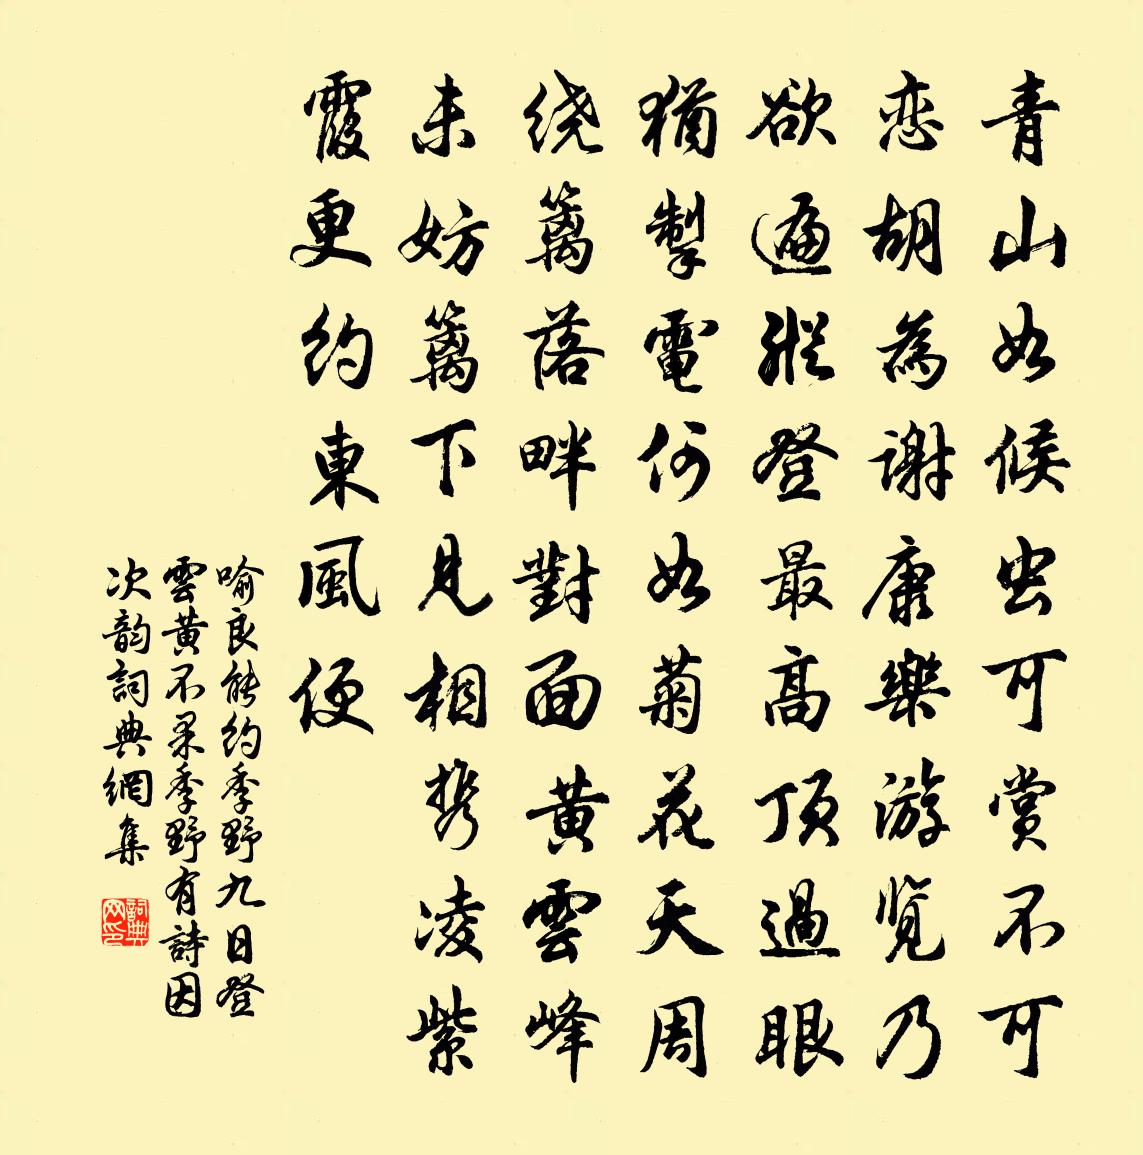 青山如候虫可賞不可
恋胡為謝康樂游览乃
欲遍縱登最高頂過眼
猶掣電何如菊花天周
绕篱落畔對面黄雲峰
未妨篱下見相携凌紫
霞更约東風便
喻良能约季野九日登
雲黄不果季野有詩因
次韵詞典網集
詞典网印